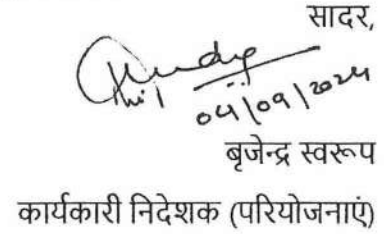 सादर,
04/09/2024
बृजेन्द्र स्वरूप
कार्यकारी निदेशक (परियोजनाएं)